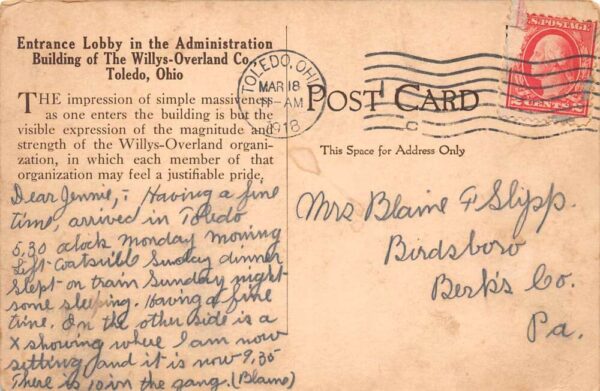 Entrance Lobby in the Administration
Building of The Willys-Overland Co.
Toledo, Ohio
THE impression of simple massiveness
as one enters the building is but the
visible expression of the magnitude and
strength of the Willys-Overland organi-
zation, in which each member of that
organization may feel a justifiable pride.
TOLEDO, OHIO
MAR 18
11-AM
1918
POST CARD
This Space for Address Only
U.S. POSTAGE
2 CENTS 2
C
Dear Jennie,- Having a fine
time, arrived in Toledo
5,30 oclock Monday morning
Left Coatsville Sunday dinner
Slept on train Sunday night
some sleeping. Having a fine
time. On the other side is a
X showing where I am now
sitting and it is now 9,35
There is 10 in the gang. (Blaine)
Mrs Blaine F Slipp.
Birdsboro
Berks Co.
Pa.